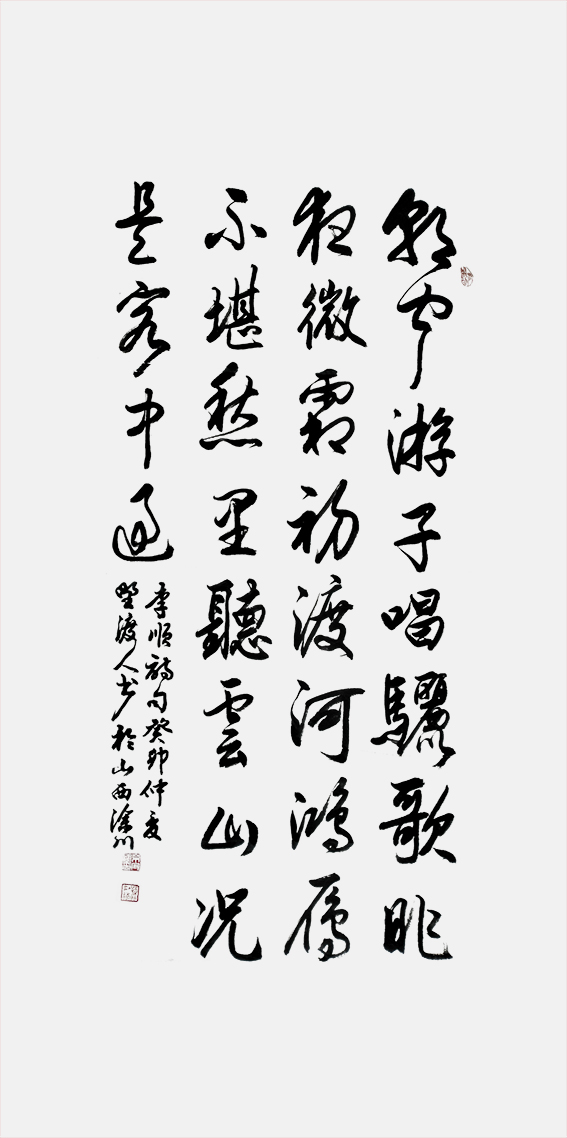 朝闻游子唱驪歌昨
夜微霜初渡河鴻雁
不堪愁里聽雲山况
是客中過
李順詩句癸卯仲夏
野渡人书於山西涂川